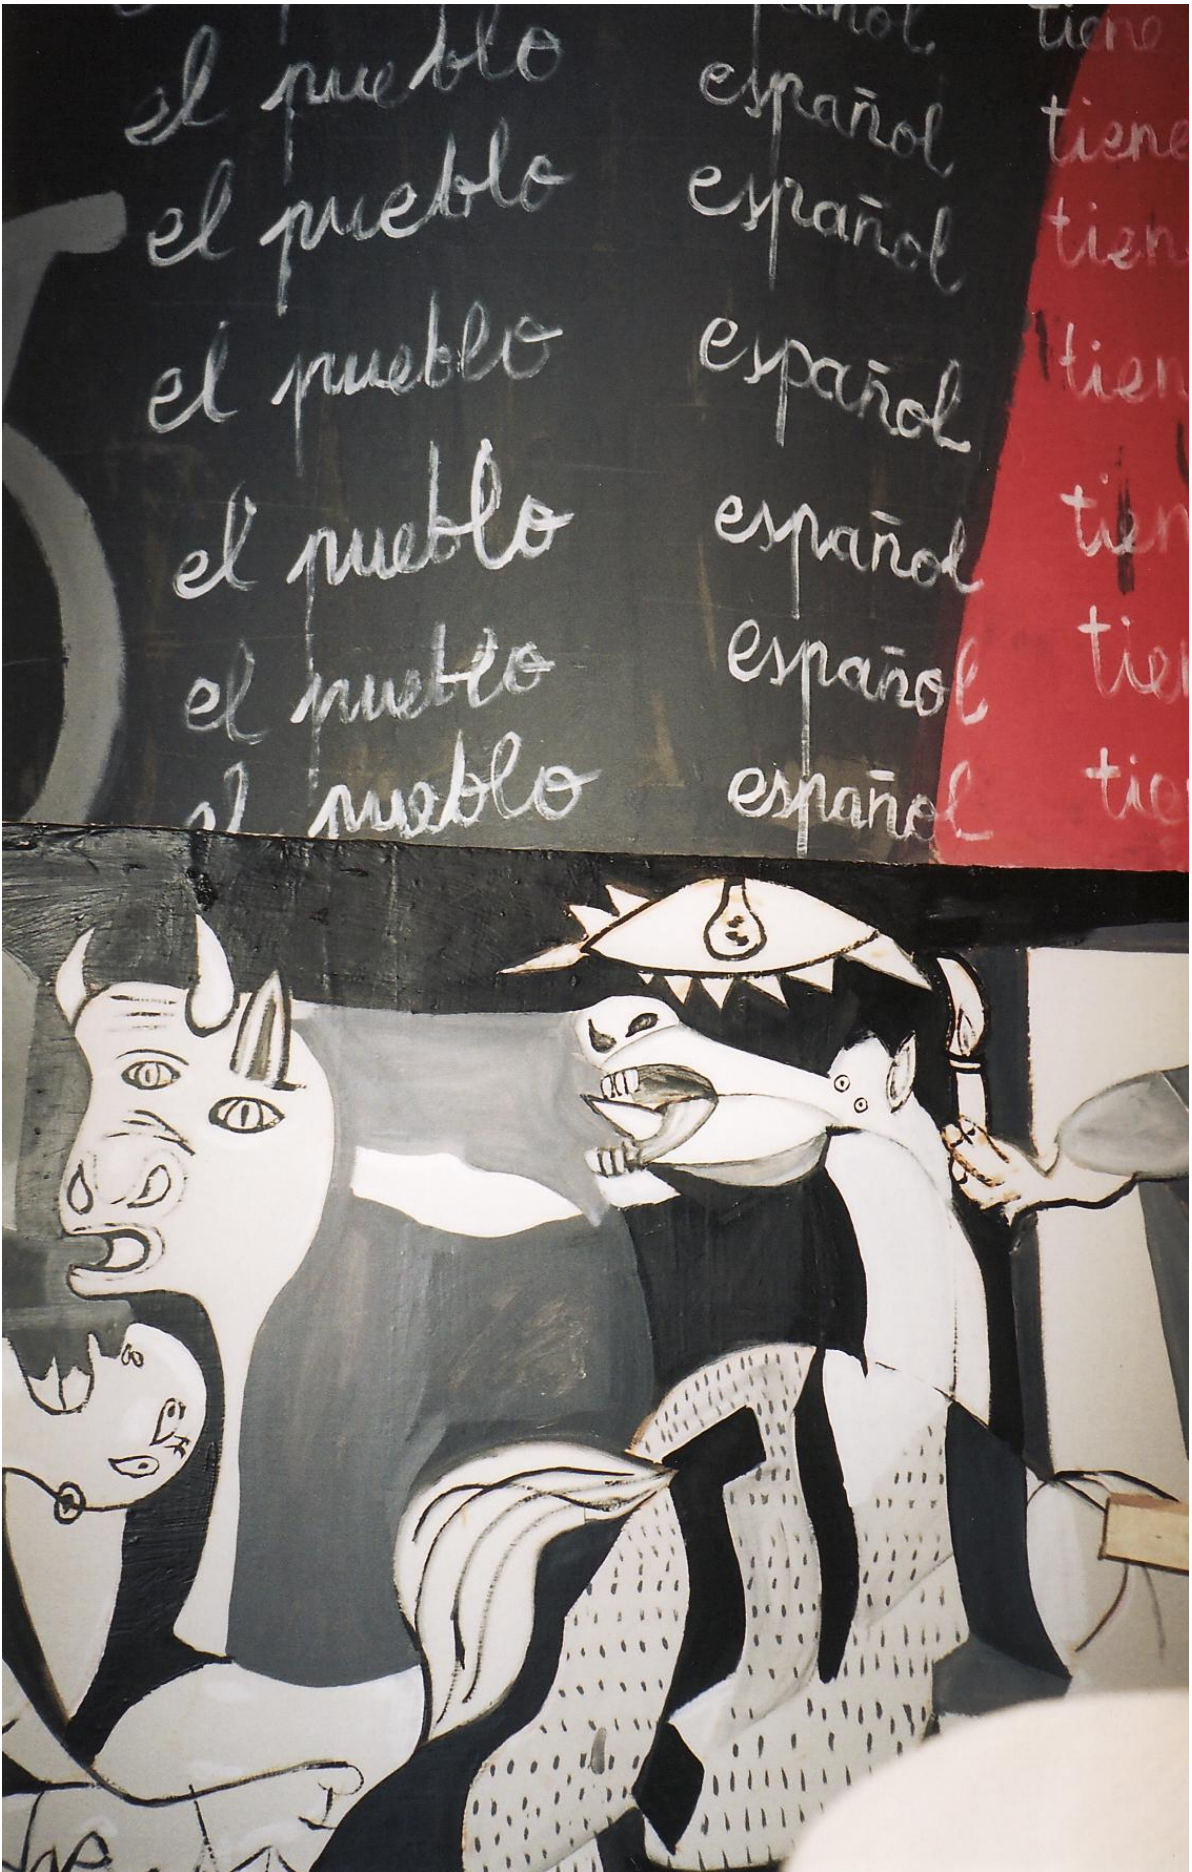 español tiene
el pueblo español tiene
el pueblo español tiene
el pueblo español tien
el pueblo español tien
el pueblo español tien
el pueblo español tie